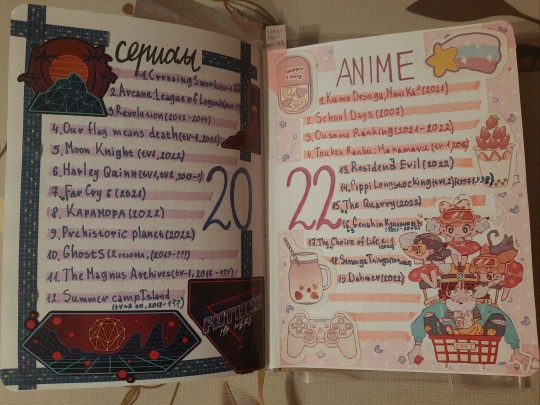 сериалы
1. Crossing Swords
2 Arcane: League of Legends
3. Revolution (2012-2014)
4. Our flag means death (tv-1, 2022)
5. Moon Knight (tv1, 2022)
6. Harley Quinn (tv1, tv2,
7. Far Cry 6 (2021)
8. КАРАМОРА (2022)
9. Prehistoric planet (2022)
10. Ghosts (2 сезона,
11. The Magnus Archives (tv-1, 2016-???)
12. Summer camp Island
20
FUTURE
IS HERE
HAPPY
ANIME
1. Kumo Desuga, Nani Ka? (2021)
2. School Days (2007)
3. Ousama Ranking (2021-2022)
4.
13. Resident Evil (2022)
14. Pippi Longstocking
15. The Quarry (2022)
16. Genshin
17. The Choice of Life
18. Strange Things
19. Dahmer (2022)
22